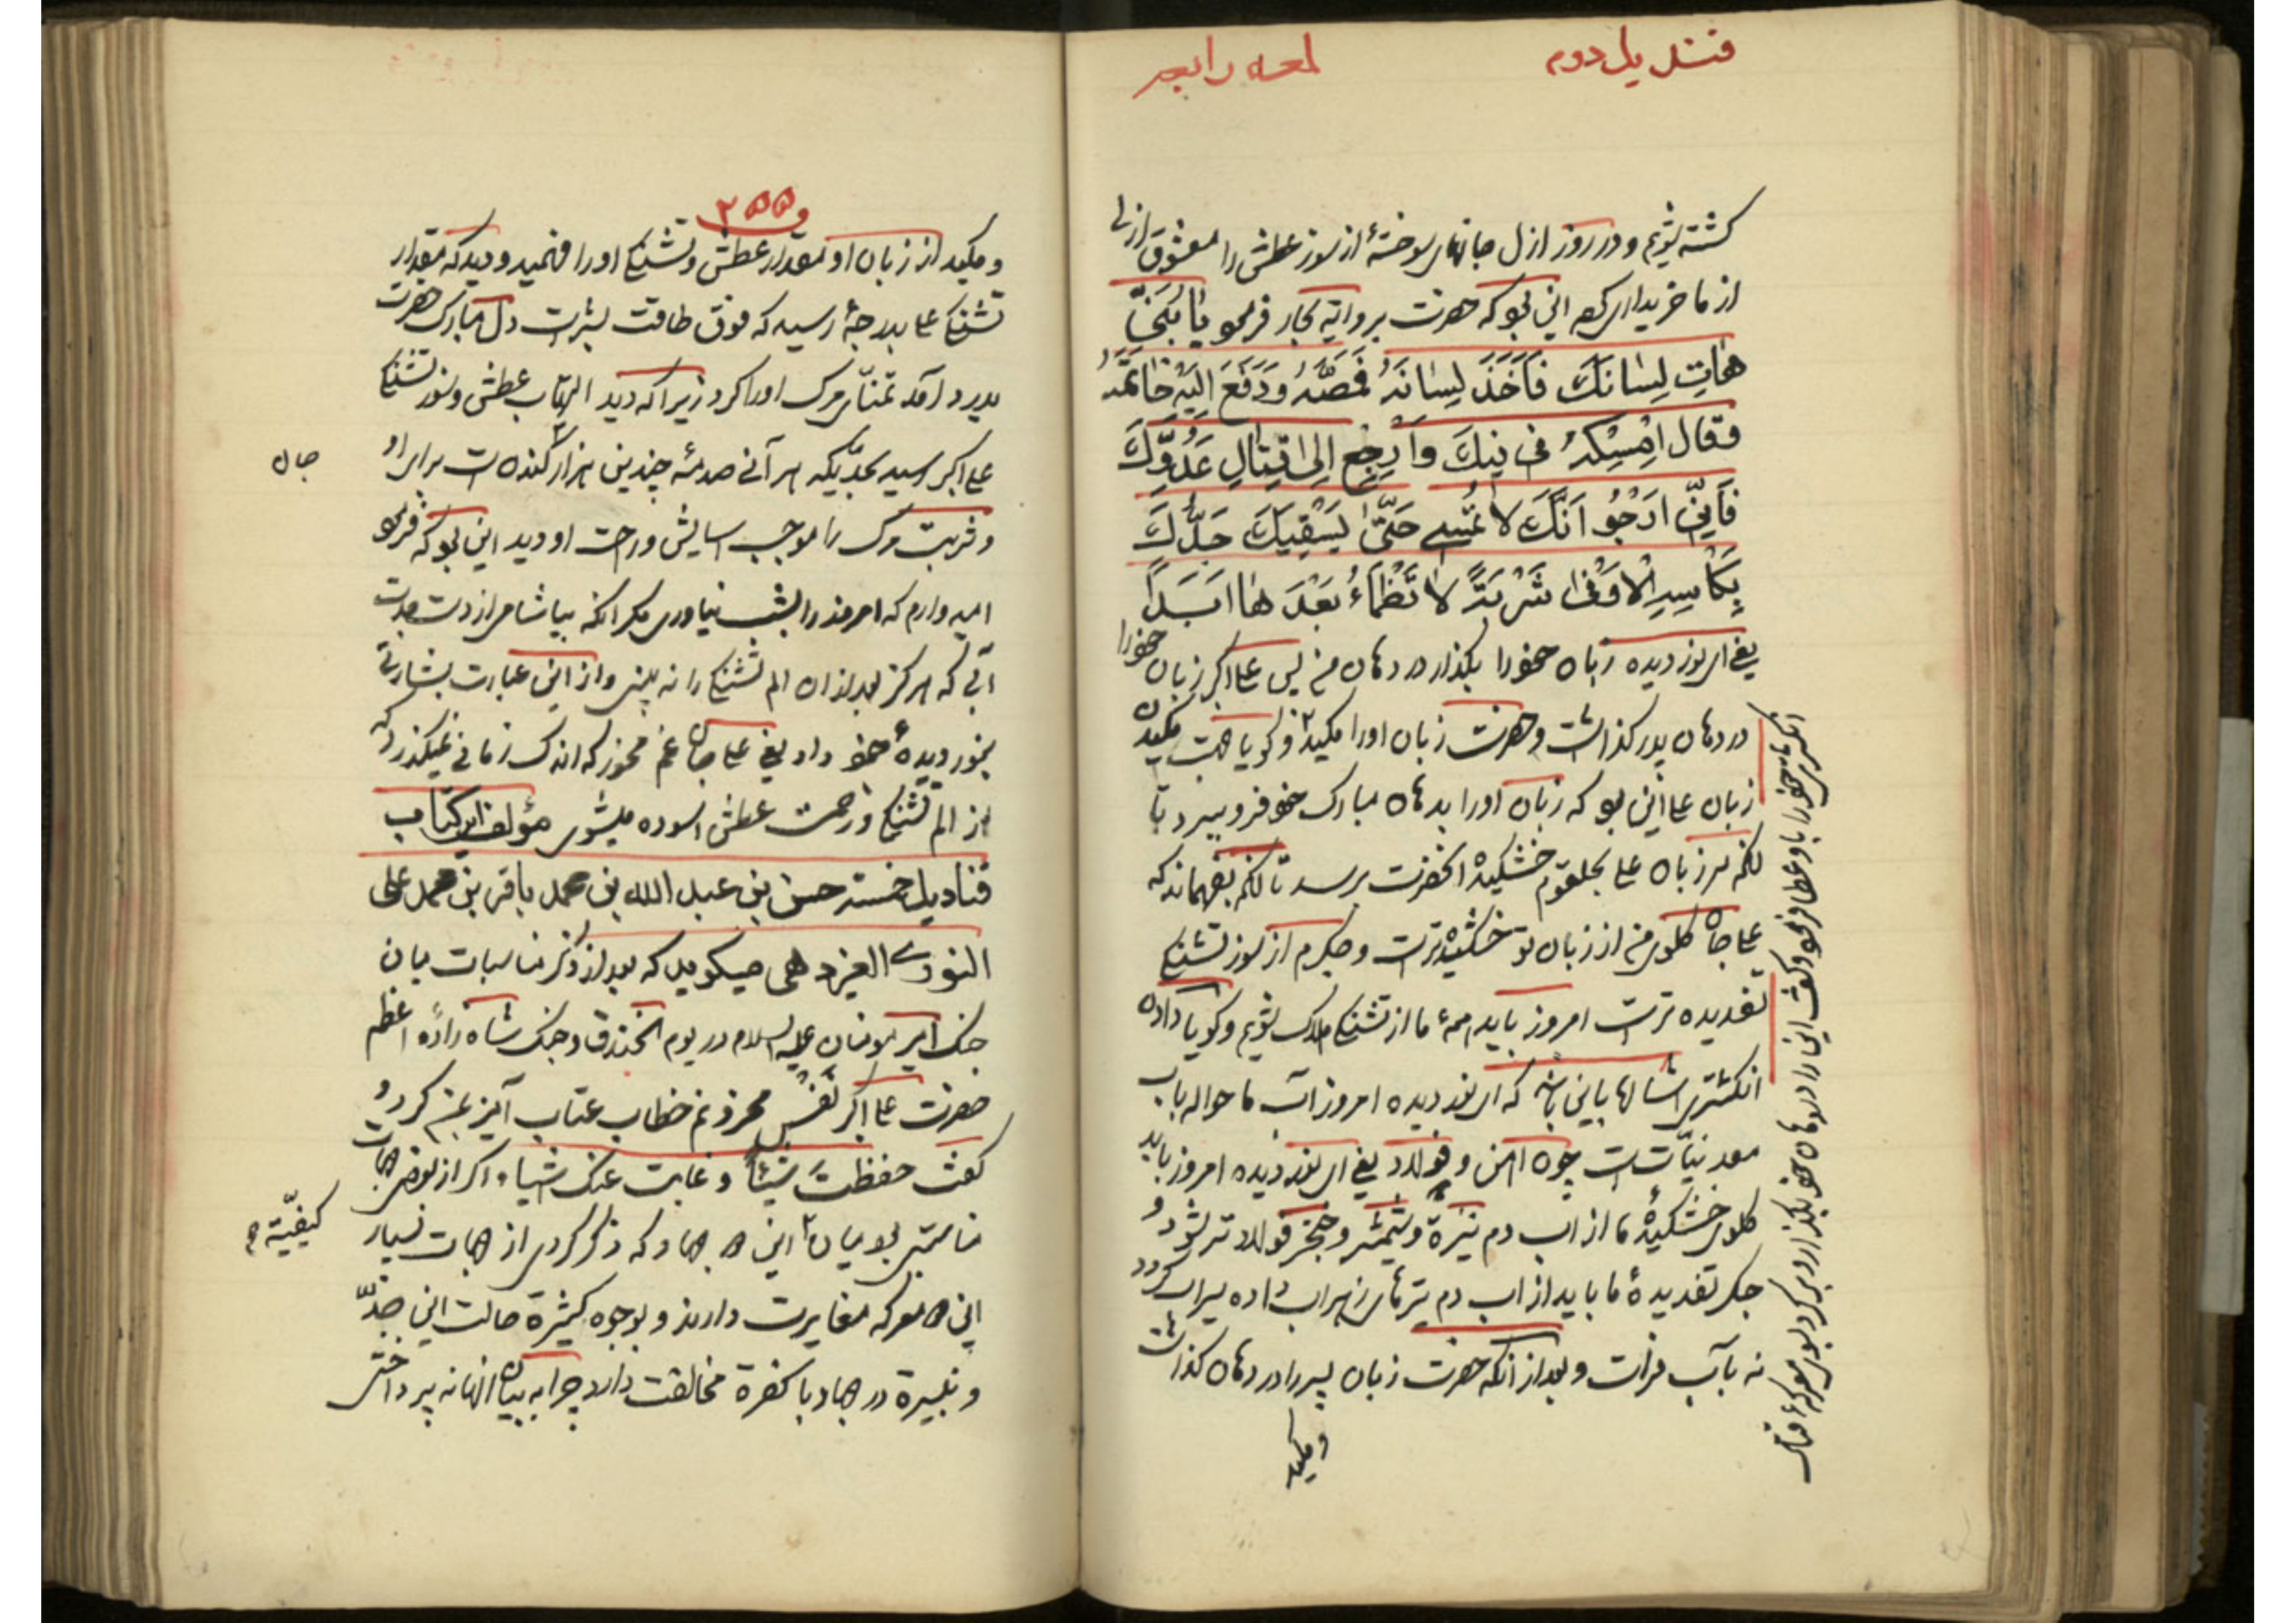 قندیل دوم
لمعه رابعه
کشته شویم و در روز ازل جانهای سوختهٔ از سوز عطش را معشوق ازلی
از ما خریداری کرد این بود که حضرت بروایة بحار فرمود یا بُنَیَّ
هاتِ لِسٰانَكَ فَاَخَذَ لِسٰانَهُ فَمَصَّهُ وَدَفَعَ اِلَیْهِ خٰاتَمَهُ
وقال اَمْسِکْهُ فی فیكَ وَارْجِع اِلیٰ قِتٰالِ عَدُوِّكَ
فَاِنّی اَرْجُو اَنَّكَ لا تُمْسی حَتّیٰ یَسْقِیَكَ جَدُّكَ
بِکَأسِهِ الْاَوْفیٰ شَرْبَةً لا تَظْمَاءُ بَعْدَهٰا اَبَداً
یعنی ای نور دیده زبان خود را بگذار در دهان من پس علی اکبر زبان خود را
در دهان پدر گذاشت و حضرت زبان اورا مکید و گویا جهت مکیدن
زبان علی این بود که زبان اورا بدهان مبارک خود فرو ببرد تا
آنکه سر زبان علی بحلقوم خشکیدهٔ آنحضرت برسد تا آنکه بفهماند که
علی جان گلوی من از زبان تو خشکیده‌تر است و جگرم از سوز تشنگی
تفدیده تر است امروز باید همهٔ ما از تشنگی هلاک شویم و گویا دادن
انگشتری اشاره باین باشد که ای نور دیده امروز آب ما حواله باب
معدنیّات است چون آهن و فولاد یعنی ای نور دیده امروز باید
گلوی خشکیدهٔ ما از آب دم نیزه و شمشیر و خنجر فولاد تر شود و
جگر تفدیدهٔ ما باید از آب دم تیرهای زهراب داده سیراب گردد
نه بآب فرات و بعد از آنکه حضرت زبان پسر را در دهان گذاشت
ومکید
انگشتری خود را باو عطا فرمود و گفت این را در دهان خود بگذار و برگرد بسوی معرکهٔ قتال
۲۵۵
و مکید از زبان او مقدار عطش و تشنگی اورا فهمید و دید که مقدار
تشنگی علی بدرجهٔ رسیده که فوق طاقت بشر است دل مبارک حضرت
بدرد آمد تمنّای مرگ اورا کرد زیرا که دید التهاب عطش و سوز تشنگی
علی اکبر رسیده بحدّیکه هر آنی صدمهٔ چندین هزار کشنده است برابر او
جان
و شربت مرگ را موجب اسایش و راحت او دید این بود که فرمود
امیدوارم که امروز را بشب نیاوری مگر آنکه بیاشامی از دست جدت
آبی که هرگز بعد از آن الم تشنگی را نه بینی و از این عبارت بشارتی
بنور دیدهٔ خود داد یعنی علی جان غم مخور که اندک زمانی نمیگذرد که
از الم تشنگی و زحمت عطش اسوده میشوی مؤلف این کتاب
قنادیل خمسه حسن بن عبد الله بن محمد باقر بن محمد علی
النوری الیزدهی میگوید که بعد از ذکر مناسبات میان
جنگ امیر مومنان علیه السلام در یوم الخندق و جنگ شاه زاده اعظم
حضرت علی اکبر نفس محزونم خطاب عتاب آمیز بمن کرد و
گفت حفظتَ شیئاً و غابت عنك اشیاء اگر از بعض جهات
مناسبتی بود میان این دو جهاد که ذکر کردی از جهات بسیار
کیفیّة
این دو معرکه مغایرت دارند و بوجوه کثیرة حالت این جدّ
و نبیرة در جهاد با کفرة مخالفت دارد چرا به بیان آنها نه پرداختی